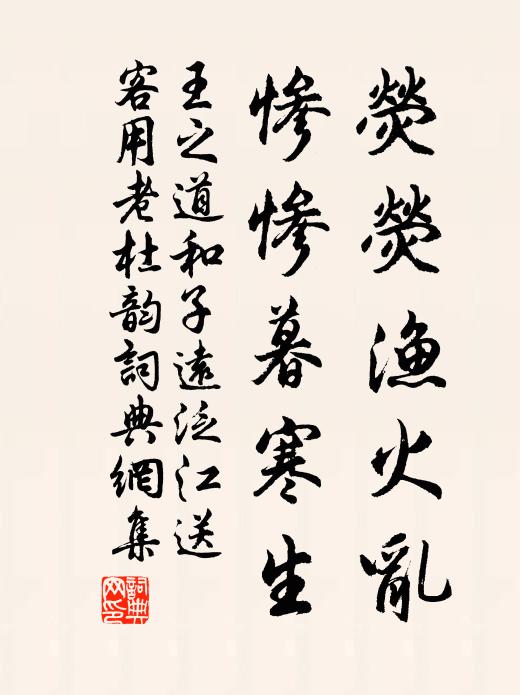 熒熒漁火亂
慘慘暮寒生
王之道和子遠泛江送
客用老杜韵詞典網集
詞典網印